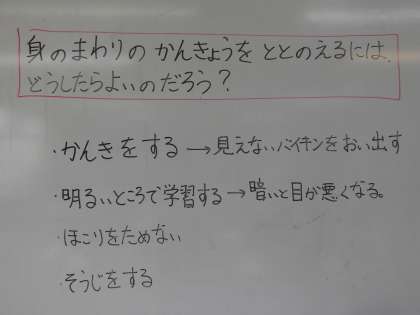 身のまわりのかんきょうをととのえるには、
どうしたらよいのだろう?
・かんきをする→見えないバイキンをおい出す
・明るいところで学習する→暗いと目が悪くなる。
・ほこりをためない
・そうじをする